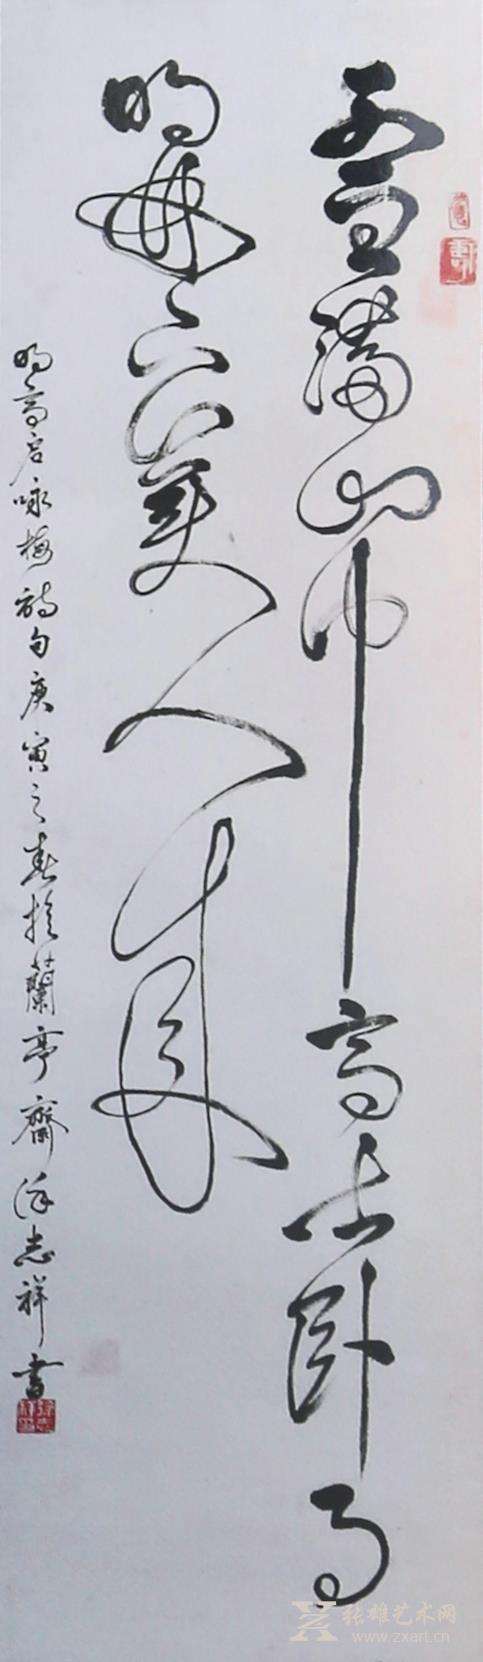 雪滿山中高士卧月
明林下美人来
明高启咏梅詩句庚寅之春於蘭亭齋徐志祥書
张雄艺术网
www.zxart.cn